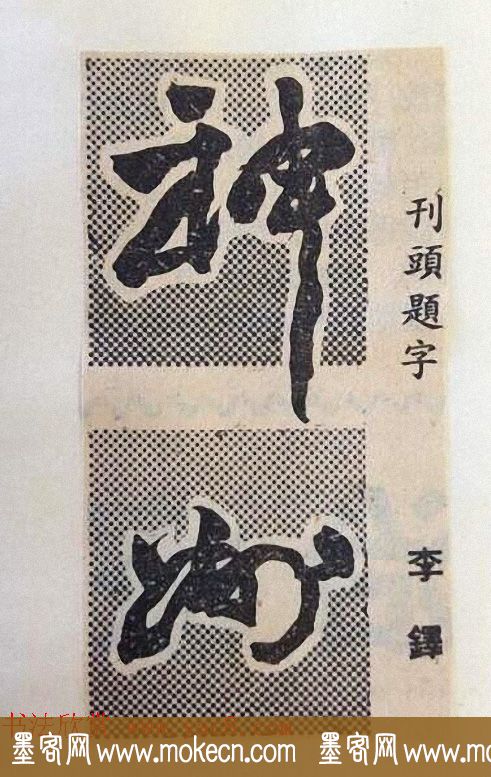 神州
刊頭題字
李鐸
书法欣赏
墨客网 www.mokecn.com 墨客网 www.mokecn.com